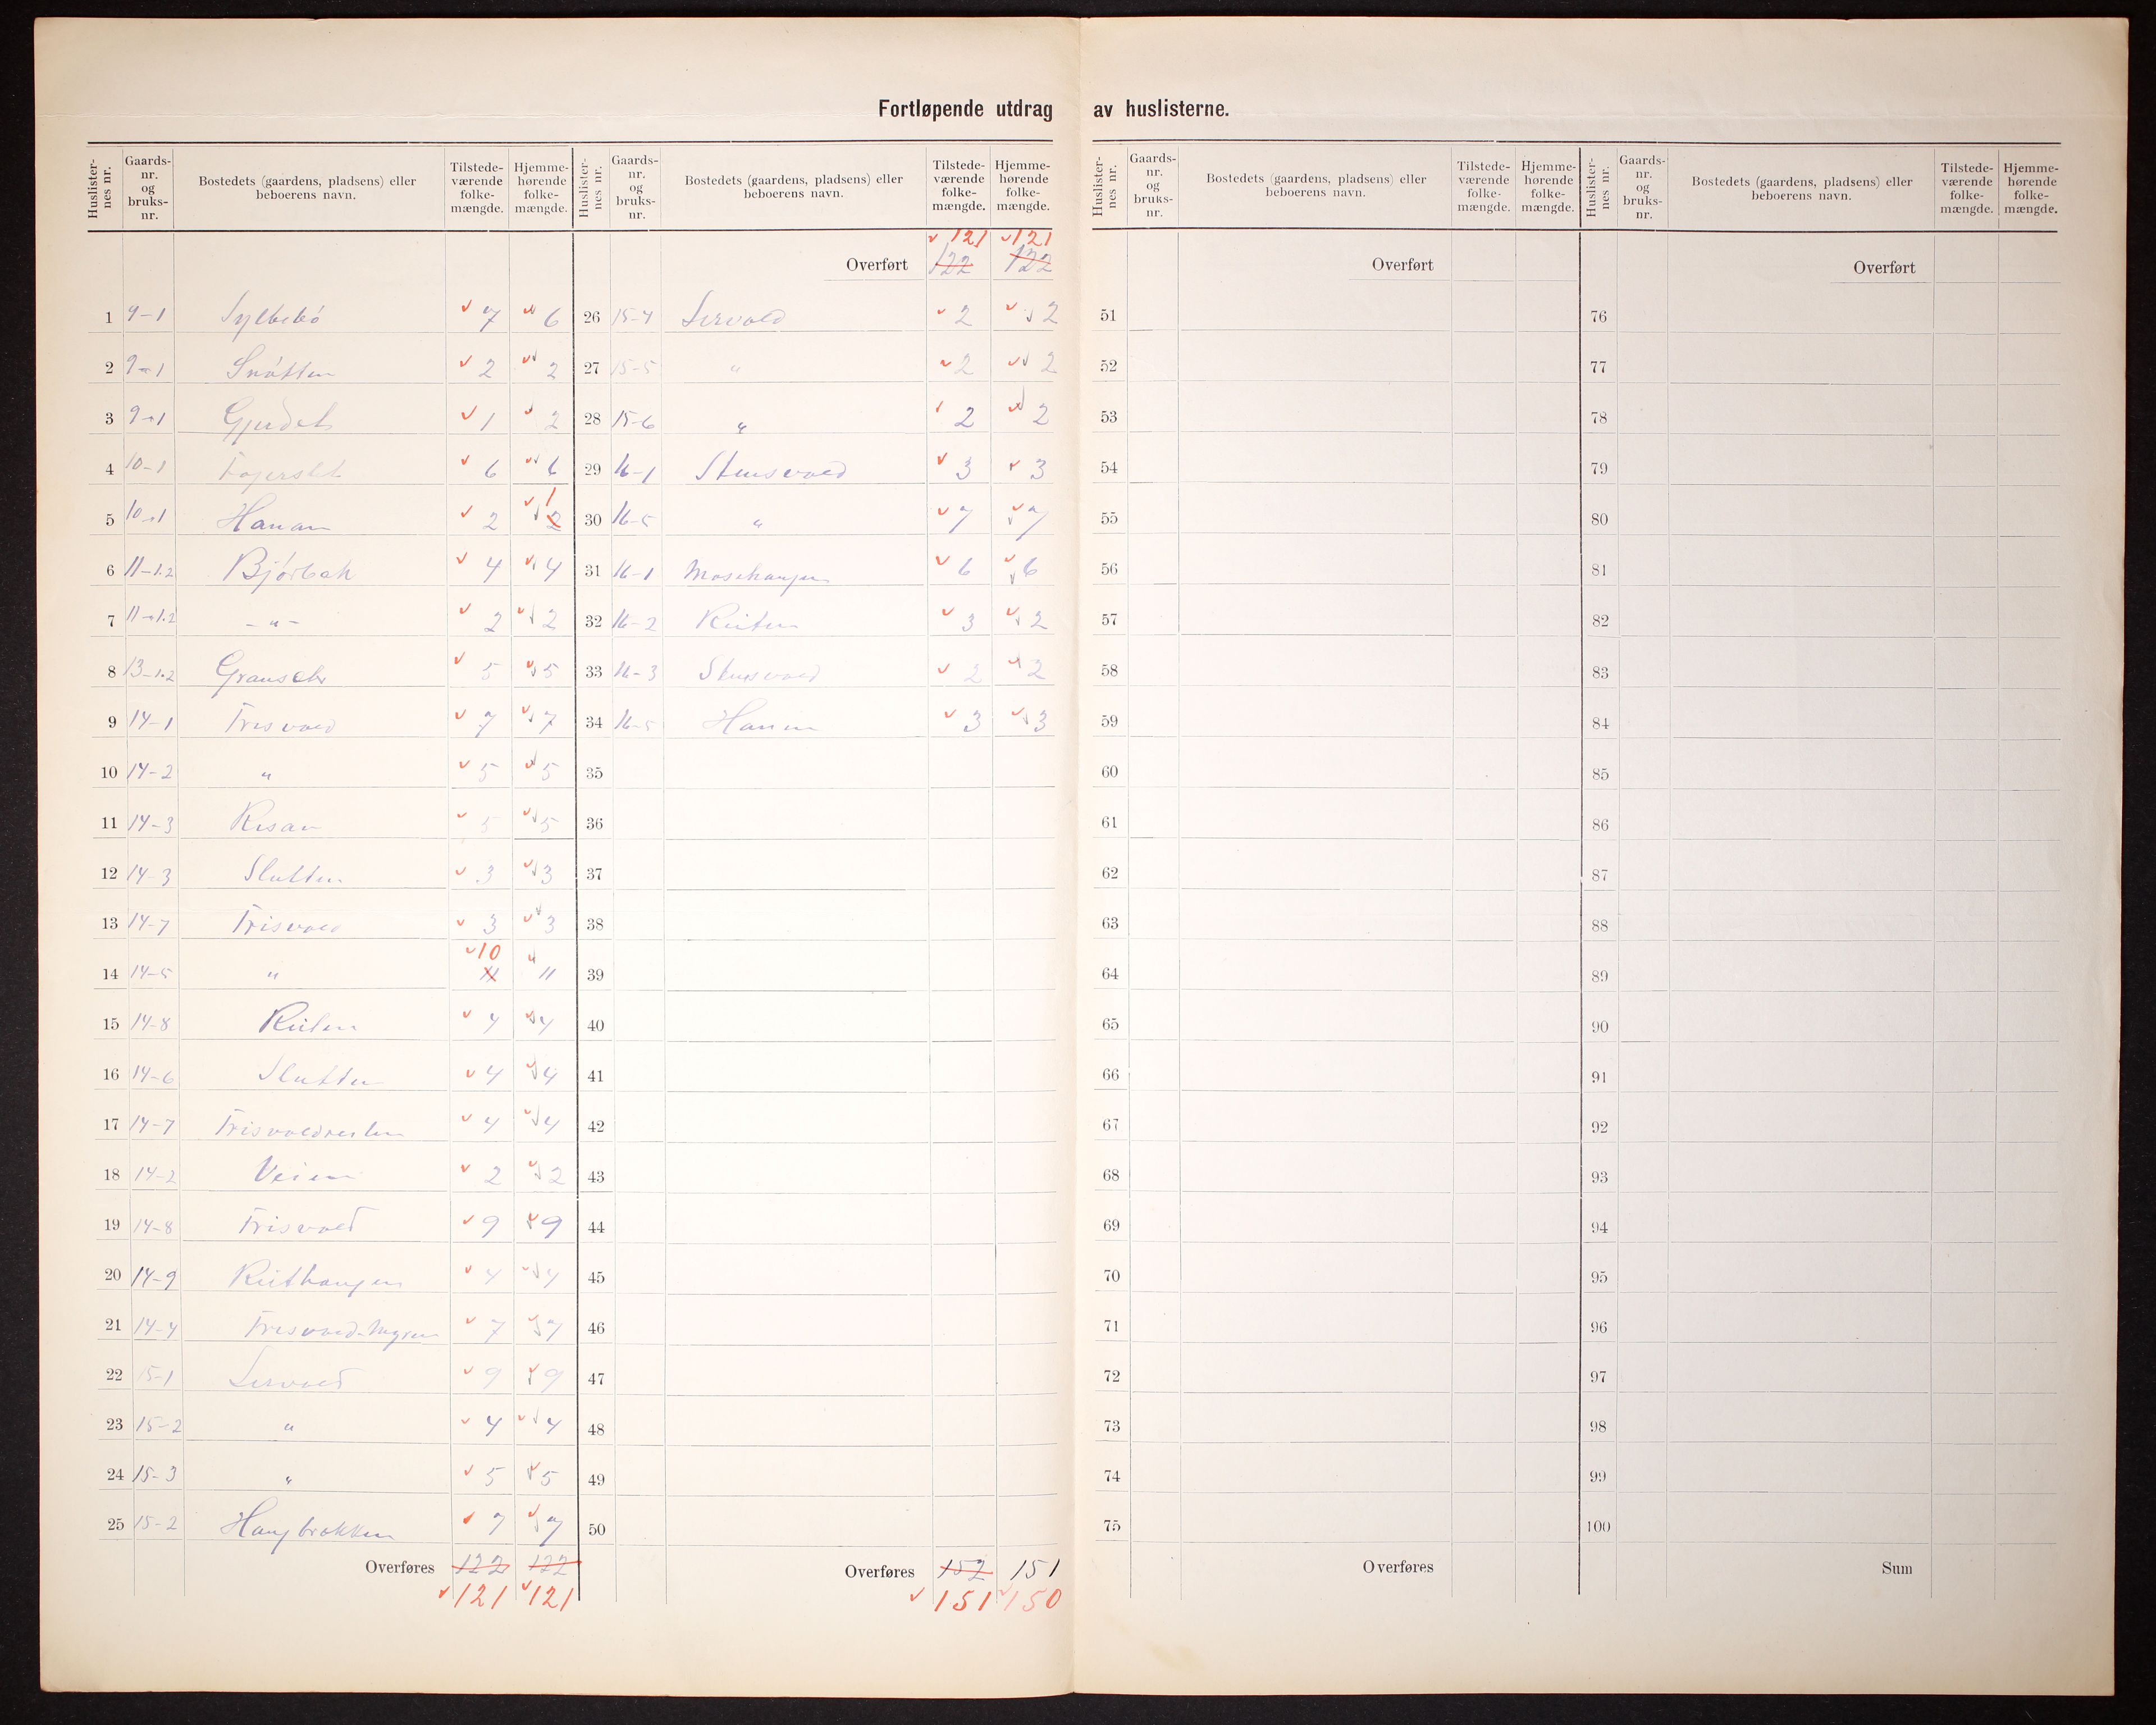 Fortløpende utdrag av huslisterne.
Huslister- nes nr. | Gaards- nr. og bruks- nr. | Bostedets (gaardens, pladsens) eller beboerens navn. | Tilstede- værende folke- mængde. | Hjemme- hørende folke- mængde.
1 9-1 7 6
2 9-1 2 2
3 9-1 Gjerdet 1 2
4 10-1 6 6
5 10-1 Hanan 2 2 1
6 11-1.2 Bjørbak 4 4
7 11-1.2 -"- 2 2
8 13-1.2 5 5
9 14-1 Frisvold 7 7
10 14-2 " 5 5
11 14-3 Risan 5 5
12 14-3 Slutten 3 3
13 14-7 Frisvold 3 3
14 14-5 " 11 10 11
15 14-8 4 4
16 14-6 Slutten 4 4
17 14-7 4 4
18 14-2 Veien 2 2
19 14-8 Frisvold 9 9
20 14-9 4 4
21 14-4 Frisvold-myren 7 7
22 15-1 Lervold 9 9
23 15-2 " 4 4
24 15-3 " 5 5
25 15-2 Haugbrekken 7 7
Overføres 122 122
121 121
Huslister- nes nr. | Gaards- nr. og bruks- nr. | Bostedets (gaardens, pladsens) eller beboerens navn. | Tilstede- værende folke- mængde. | Hjemme- hørende folke- mængde.
121 121
Overført 122 122
26 15-4 Lervold 2 2
27 15-5 " 2 2
28 15-6 " 2 2
29 16-1 Stensvold 3 3
30 16-5 " 7 7
31 16-1 Mosehaugen 6 6
32 16-2 3 2
33 16-3 Stensvold 2 2
34 16-5 3 3
35
36
37
38
39
40
41
42
43
44
45
46
47
48
49
50
Overføres 152 151
151 150
Huslister- nes nr. | Gaards- nr. og bruks- nr. | Bostedets (gaardens, pladsens) eller beboerens navn. | Tilstede- værende folke- mængde. | Hjemme- hørende folke- mængde.
Overført
51
52
53
54
55
56
57
58
59
60
61
62
63
64
65
66
67
68
69
70
71
72
73
74
75
Overføres
Huslister- nes nr. | Gaards- nr. og bruks- nr. | Bostedets (gaardens, pladsens) eller beboerens navn. | Tilstede- værende folke- mængde. | Hjemme- hørende folke- mængde.
Overført
76
77
78
79
80
81
82
83
84
85
86
87
88
89
90
91
92
93
94
95
96
97
98
99
100
Sum